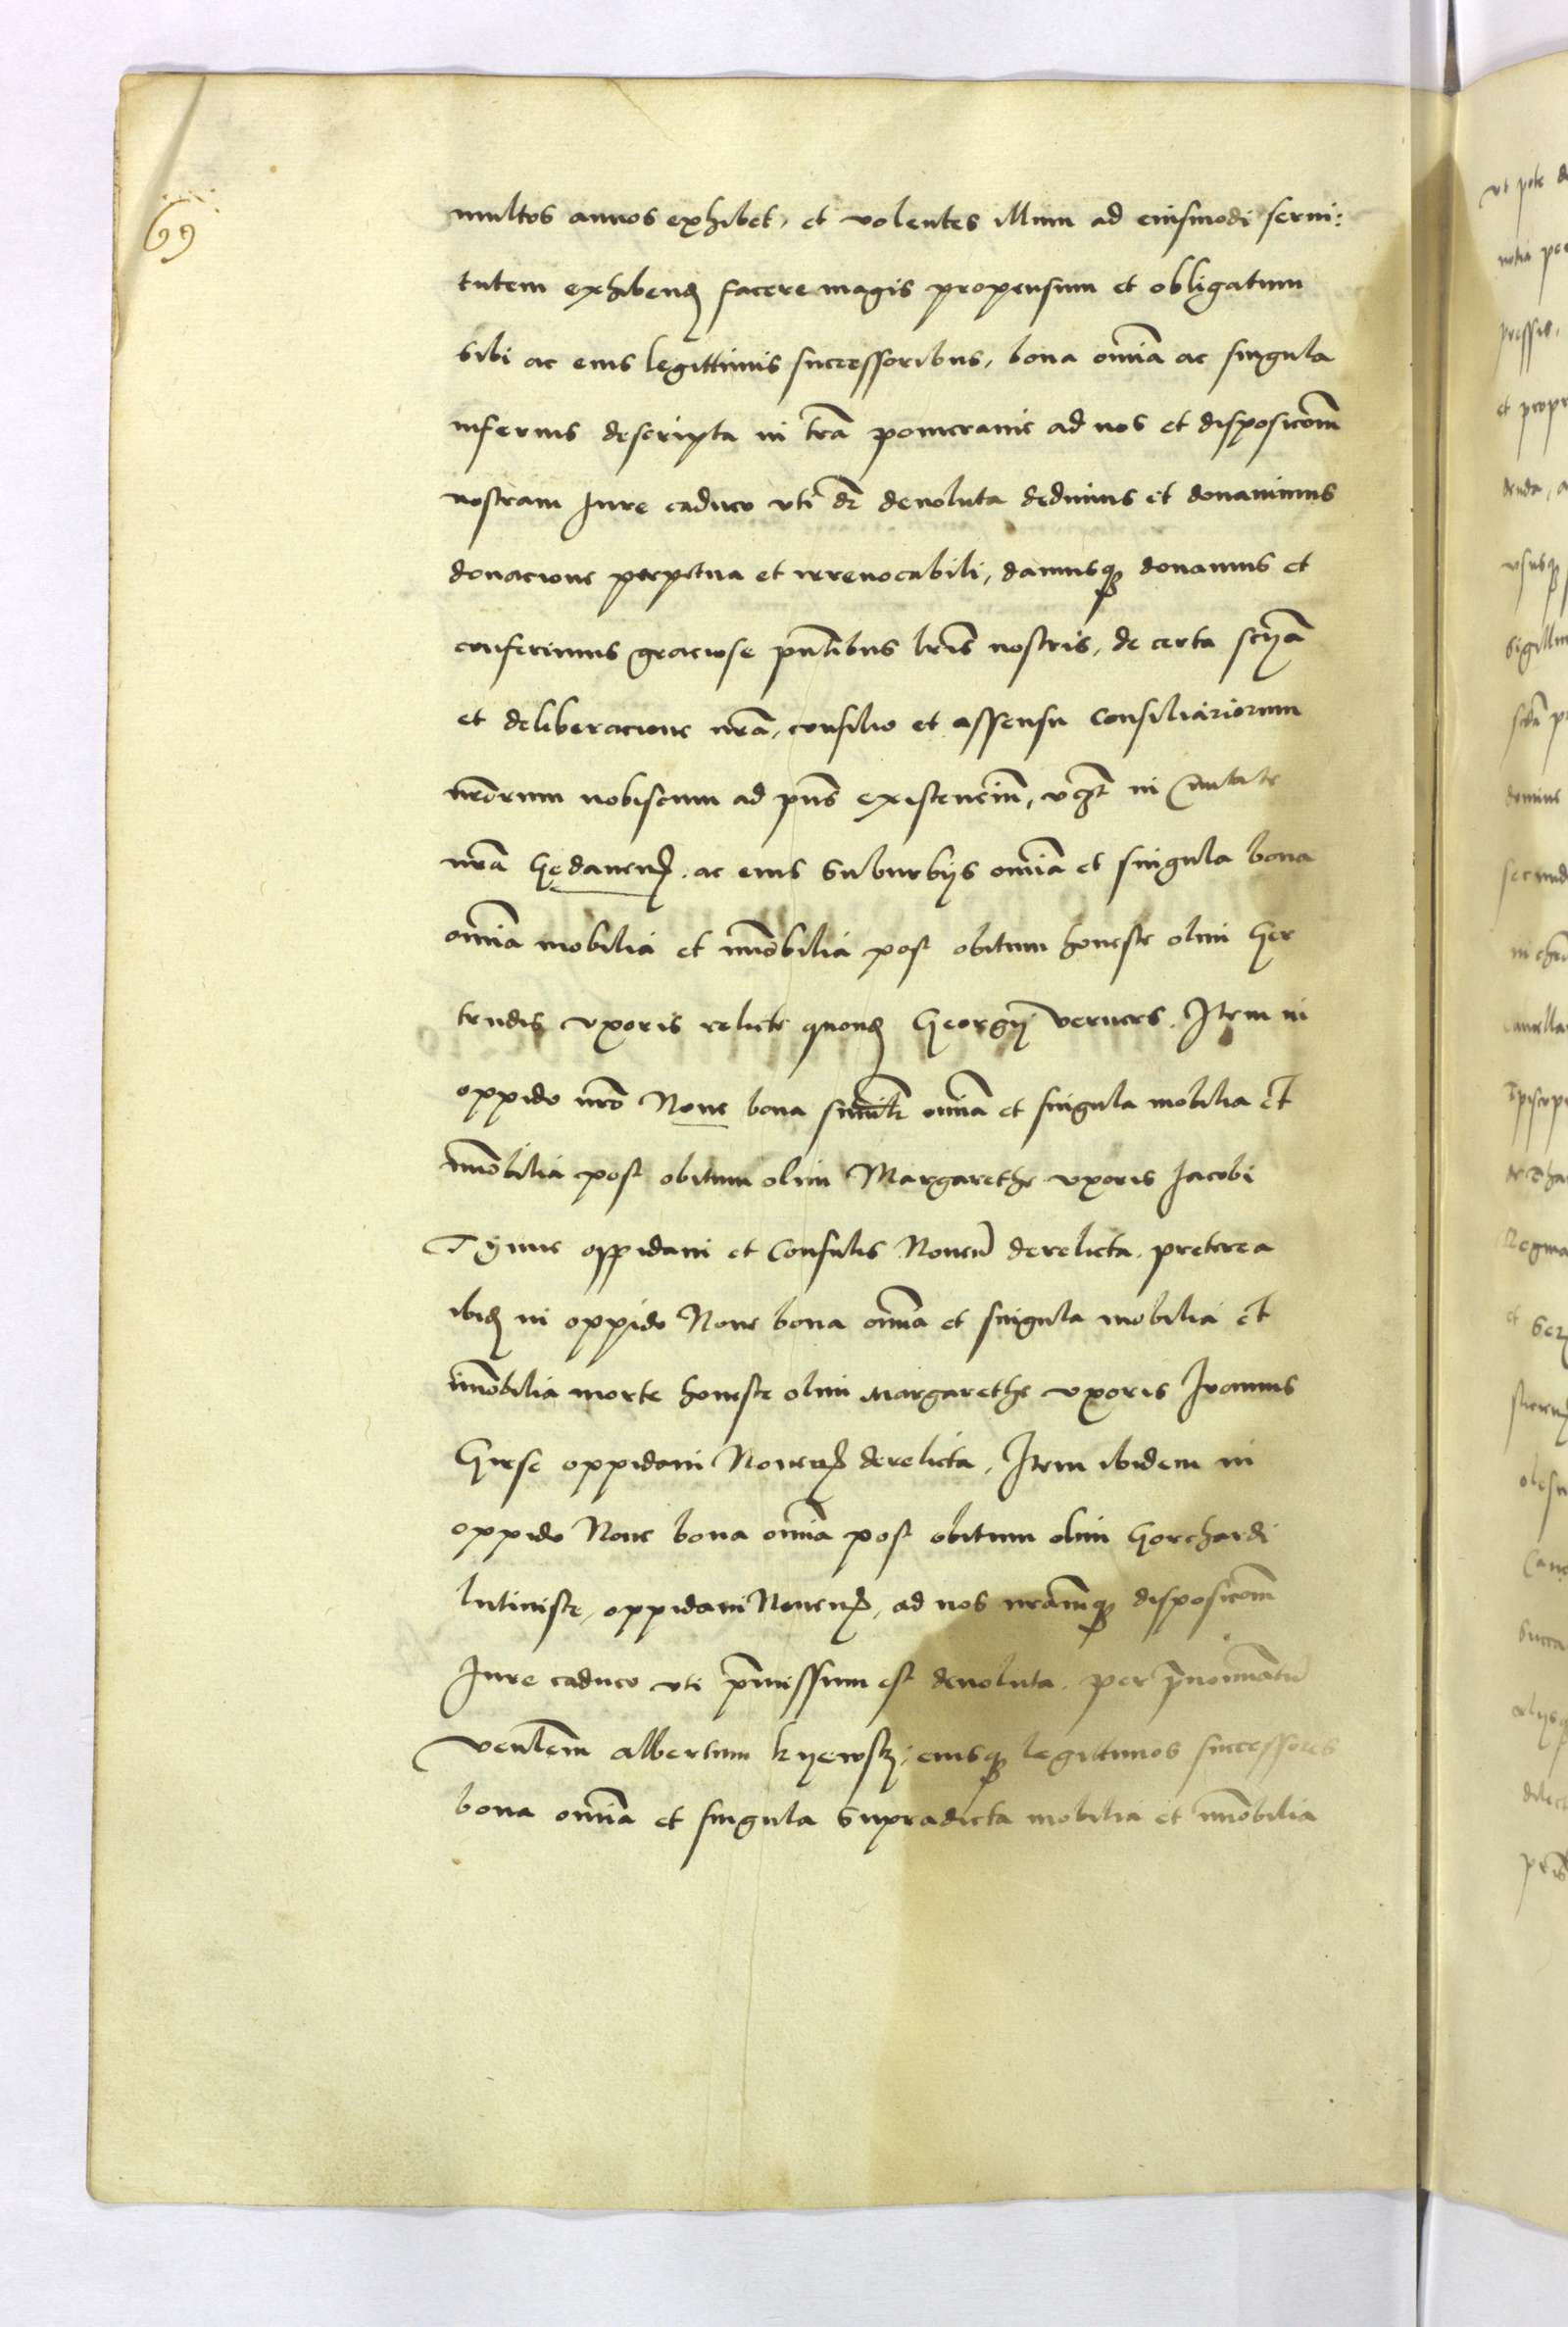 69
multos annos exhibet, et volentes illum ad eiusmodi serui:
tutem exhibend facere magis propensum et obligatum
sibi ac eius legittimis successoribus, bona omia ac singula
inferius descripta in tra pomeranie ad nos et disposicom
nostram Iure caduco vti dr deuoluta dedimus et donauimus
donacione perpetua et irreuocabili, damusq donamus et
conferimus graciose pntibus lris nostris, de certa scia
et deliberacione nra, consilio et assensu Consiliariorum
nrorum nobiscum ad pns existencium, vczt in Ciuitate
nra Gedanens. ac eius Suburbijs omia et singula bona
omia mobilia et imobilia post obitum honeste olim Ger
trudis vxoris relicte quond Georgij verners. Item in
oppido nro None bona similr omia et singula mobilia et
imobilia post obitum olim Margarethe vxoris Iacobi
Tyme oppidani et Consulis Nouen derelicta. preterea
ibid in oppido Noue bona omia et singula mobilia et
imobilia morte honeste olim Margarethe vxoris Ioannis
Giese oppidani Nouens derelicta, Item ibidem in
oppido Noue bona omia post obitum olim Gerchardi
lutiniste, oppidani Nouens, ad nos nramq disposicom
Iure caduco vti pmissum est deuoluta. per pnominatu
venlem Albertum kyewsky, eiusq legittimos successores
bona omia et singula Supradicta mobilia et imobilia